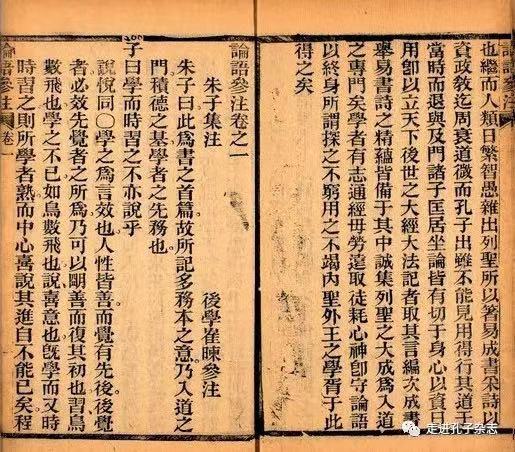 論語參注
也繼而人類日繁智愚雜出列聖所以著易成書采詩以
資政敎迄周衰道微而孔子出雖不能見用得行其道于
當時而退與及門諸子匡居坐論皆有切于身心以資日
用卽以立天下後世之大經大法記者取其言編次成書
舉易書詩之精蘊皆備于其中誠集列聖之大成爲入道
之專門矣學者有志通經毋勞遠取徒耗心神卽守論語
以終身所謂探之不窮用之不竭內聖外王之學胥于此
得之矣
論語參注卷之一
朱子集注 後學崔暕參注
朱子曰此爲書之首篇故所記多務本之意乃入道之
門積德之基學者之先務也
子曰學而時習之不亦說乎
說悅同〇學之爲言效也人性皆善而覺有先後後覺
者必效先覺者之所爲乃可以明善而復其初也習鳥
數飛也學之不已如鳥數飛也說喜意也旣學而又時
時習之則所學者熟而中心喜說其進自不能已矣程
論語參注 卷一
走进孔子杂志